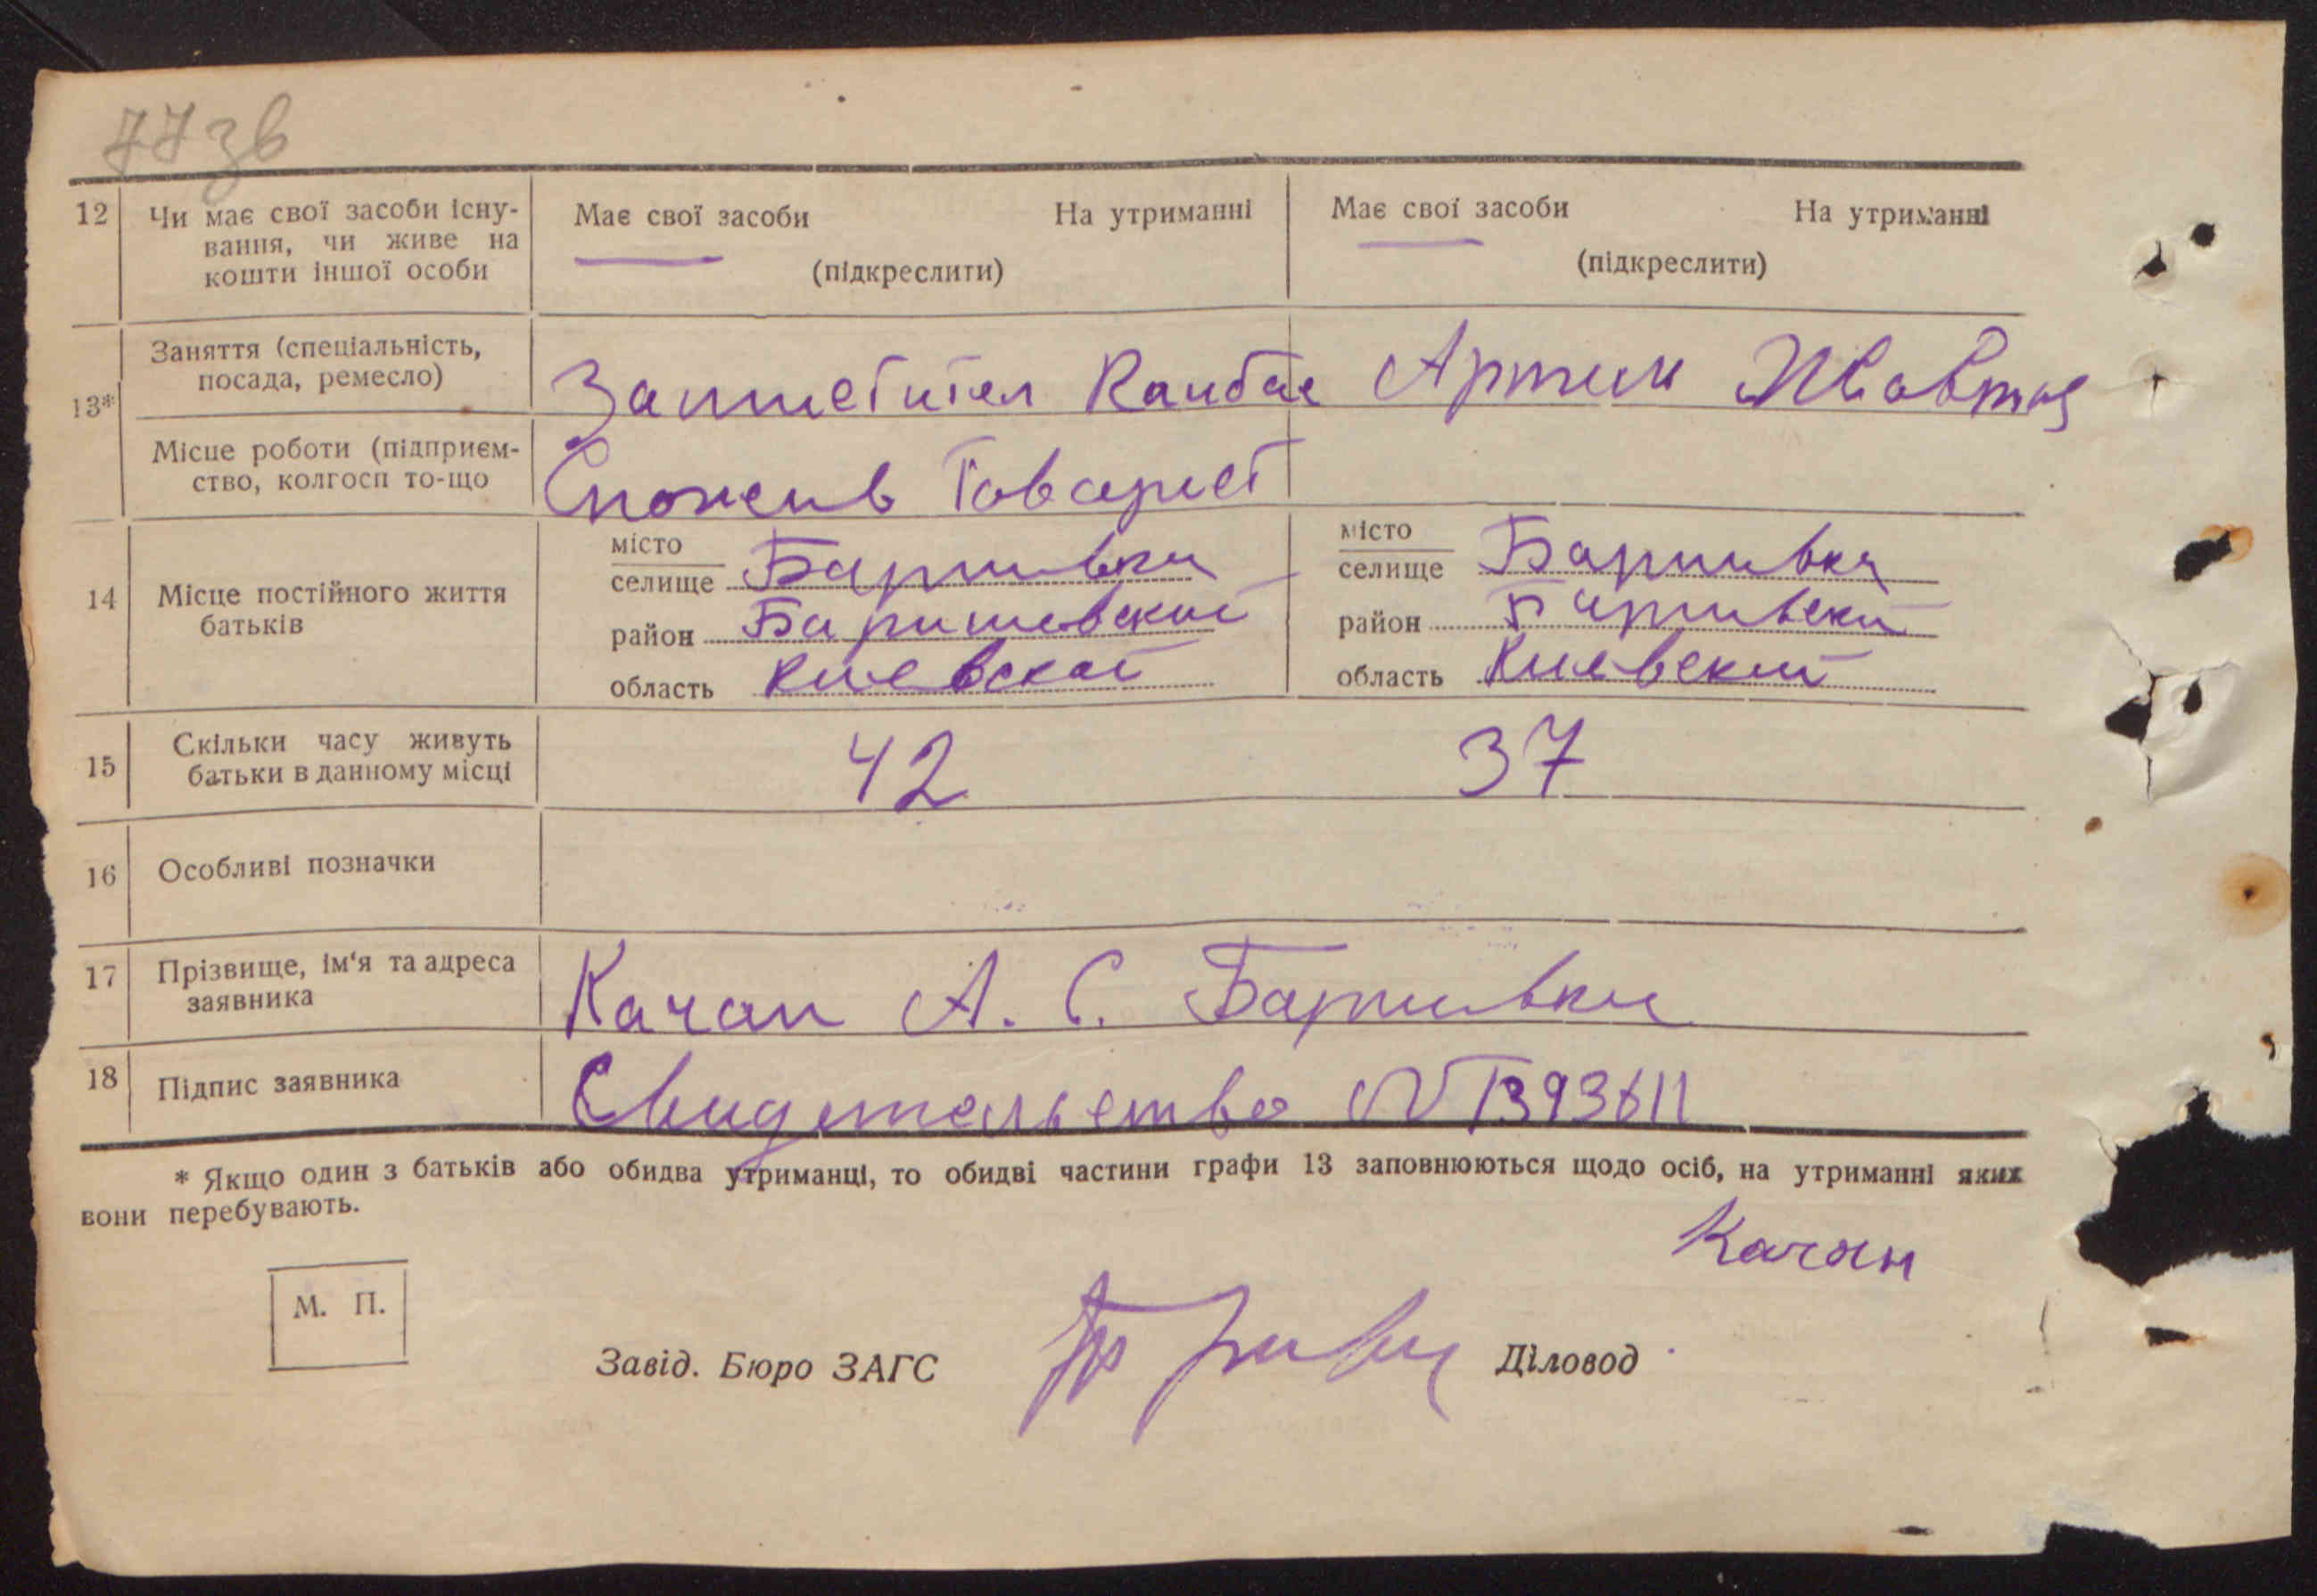 77зв
12 Чи має свої засоби існу- Має свої засоби На утриманні Має свої засоби На утриманні
вання, чи живе на
кошти іншої особи (підкреслити) (підкреслити)
Заняття (спеціальність,
посада, ремесло) Артели Жовтня
13*
Місце роботи (підприєм-
ство, колгосп то-що Спожив Товарист
місто місто
селище Баришивки селище Баришивка
14 Місце постійного життя
батьків район Баришевский район Баришивски
область Киевской область Киевский
15 Скільки часу живуть 42 37
батьки в данному місці
16 Особливі позначки
17 Прізвище, ім'я та адреса Качан А. С. Баришивки
заявника
18 Підпис заявника Свидетельство №
* Якщо один з батьків або обидва утриманці, то обидві частини графи 13 заповнюються щодо осіб, на утриманні яких
вони перебувають.
Качан
М. П.
Завід. Бюро ЗАГС Діловод